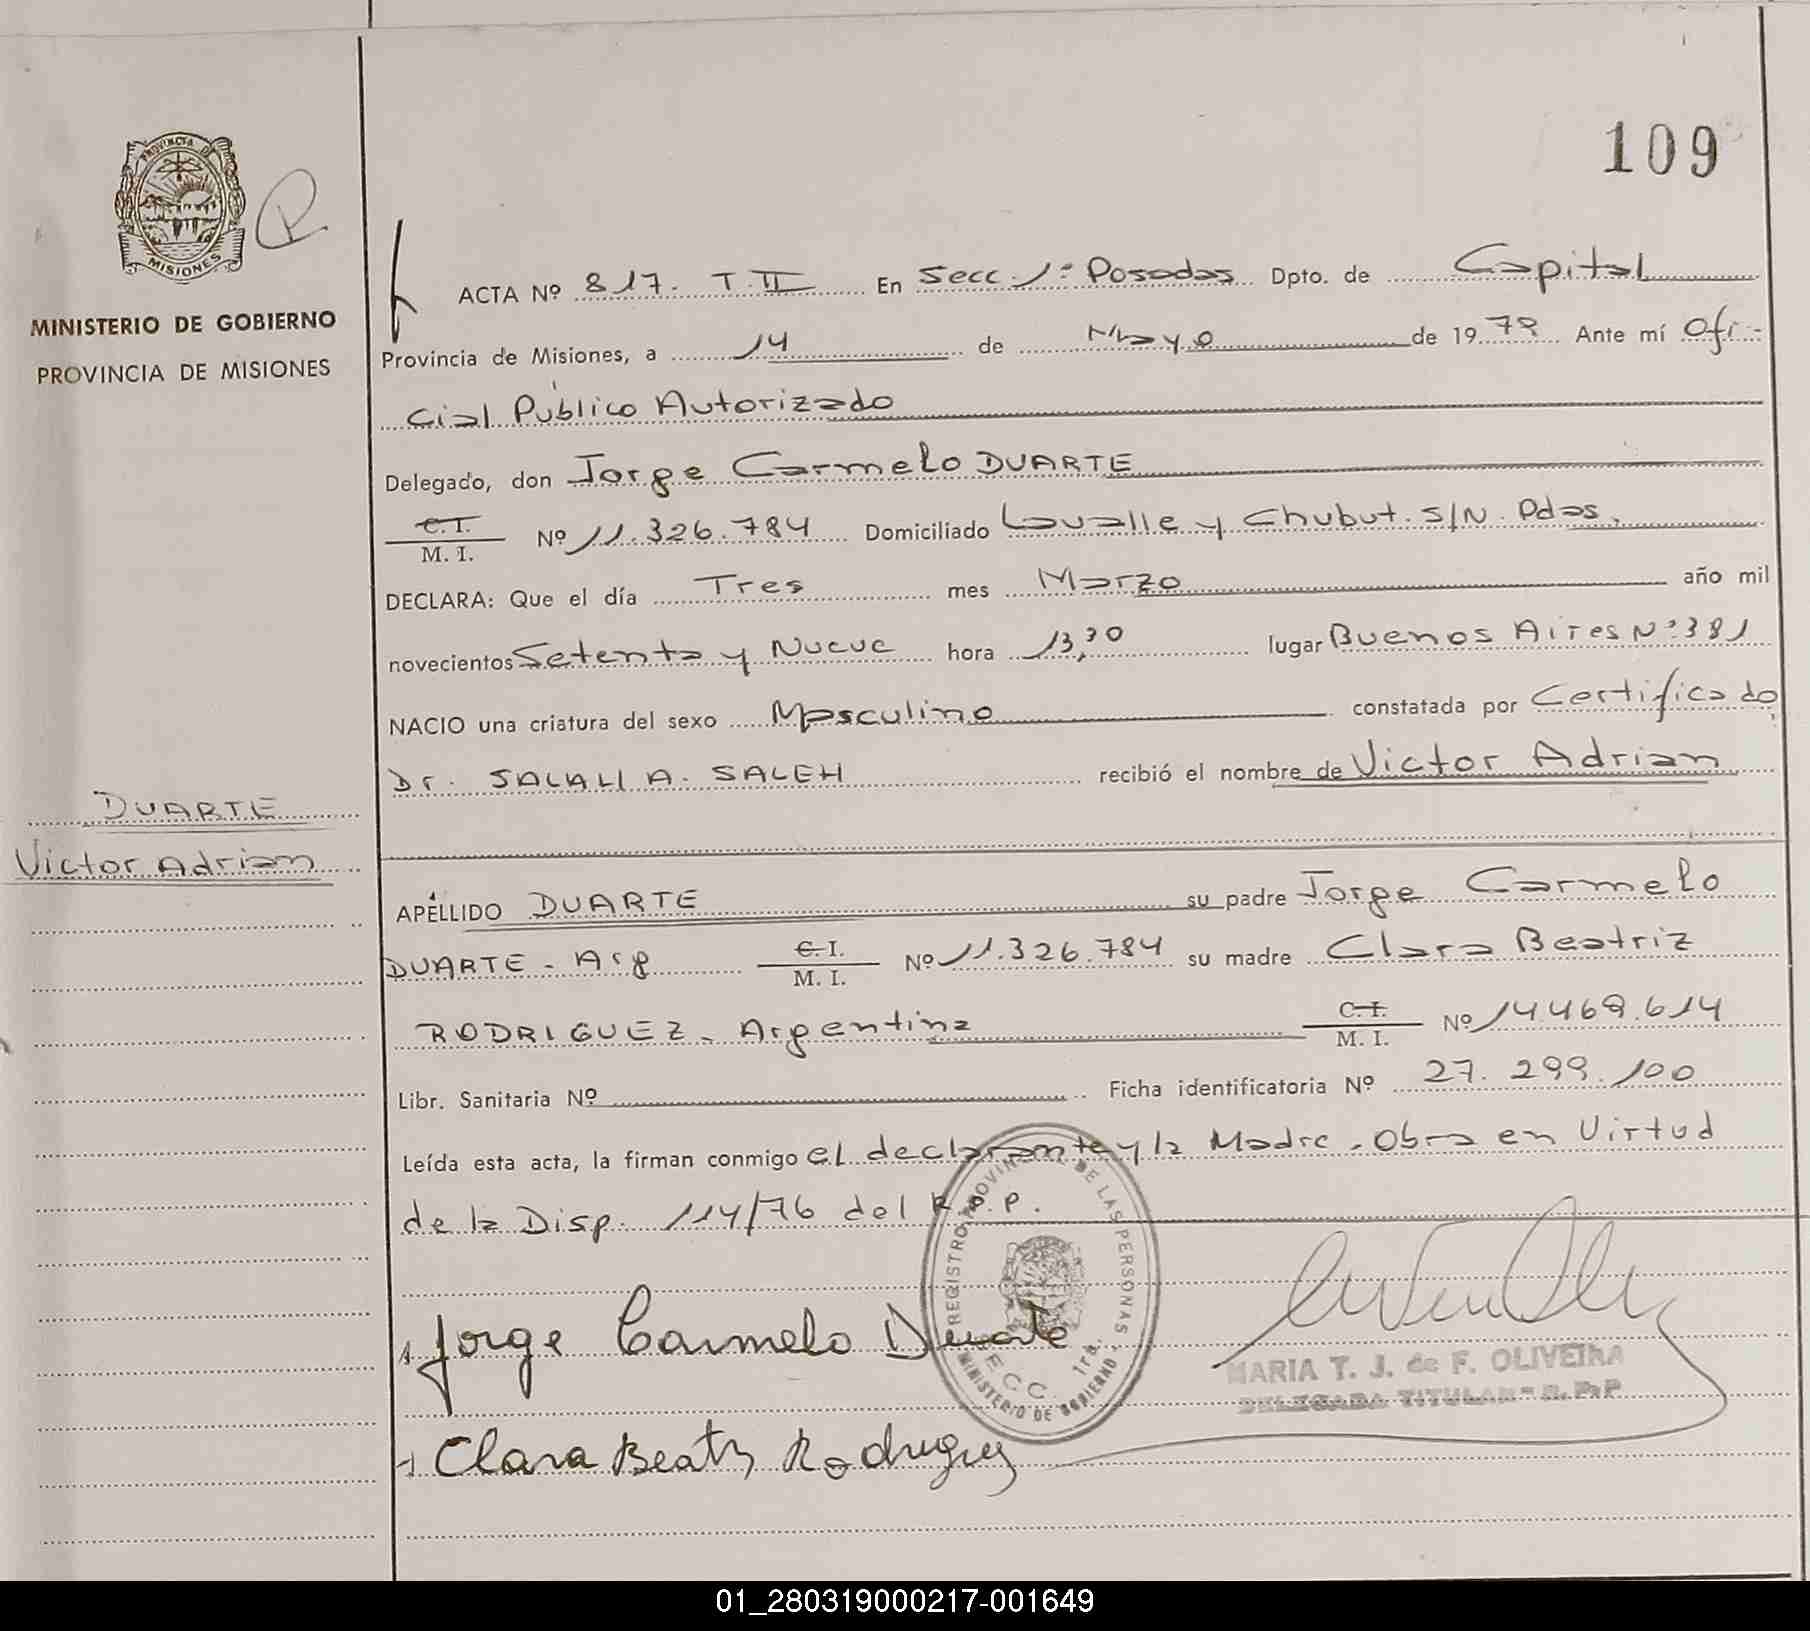 109
PROVINCIA DE
MISIONES
MINISTERIO DE GOBIERNO
PROVINCIA DE MISIONES
ACTA Nº 817. T. II En Secc. 1ª Posadas Dpto. de Capital
Provincia de Misiones, a 14 de Mayo de 1979 Ante mí Ofi-
cial Público Autorizado
Delegado, don Jorge Carmelo DUARTE
C. I.
M. I. Nº 11.326.784 Domiciliado Lavalle y Chubut. S/N. Pdas.
DECLARA: Que el día Tres mes Marzo año mil
novecientos Setenta y Nueve hora 13,30 lugar Buenos Aires Nº 381
NACIO una criatura del sexo Masculino constatada por Certificado
Dr. SALALI A. SALEH recibió el nombre de Victor Adrian
DUARTE
Victor Adrian
APELLIDO DUARTE su padre Jorge Carmelo
DUARTE - Arg C. I.
M. I. Nº 11.326.784 su madre Clara Beatriz
RODRIGUEZ - Argentina C. I.
M. I. Nº 14.469.614
Libr. Sanitaria Nº Ficha identificatoria Nº 27.299.100
Leída esta acta, la firman conmigo el declarante y la Madre. Obra en Virtud
de la Disp. 114/76 del R.P.P.
REGISTRO PROVINCIAL DE LAS PERSONAS
SECC. 1ra.
MINISTERIO DE GOBIERNO
Jorge Carmelo Duarte
MARIA T. J. de F. OLIVEIRA
DELEGADA TITULAR - R. P. P
Clara Beatriz Rodriguez
01_280319000217-001649